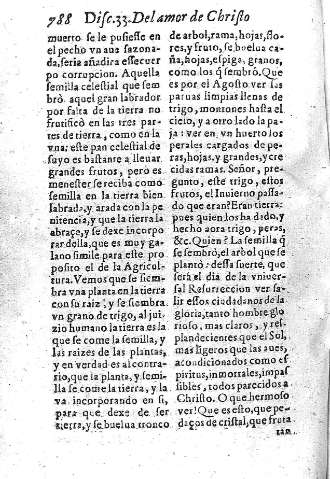 788 Disc.33. Del amor de Christo
muerto se le pusiesse en
el pecho vna sazona-
da, seria añadira essecuer
po corrupcion. Aquella
semilla celestial que sem
brò aquel gran labrador
por falta de la tierra no
frutificò en las tres par-
tes de tierra, como en la
vna: este pan celestial de
suyo es bastante a lleuar
grandes frutos, pero es
menester se reciba como
semilla en la tierra bien
labrada, y arada con la pe
nitencia, y que la tierra la
abraçe, y se dexe incorpo
rar della, que es muy ga-
lano simile para este pro
posito el de la Agricul-
tura. Vemos que se siem-
bra vna planta en la tierra
con su raiz, y se siembra
vn grano de trigo, al jui-
zio humano la tierra es la
que se come la semilla, y
las raizes de las plantas,
y en verdad es al contra-
rio, que la planta, y semi-
lla se come la tierra, y la
va incorporando en si,
para que dexe de ser
tierra, y se buelua tronco
de arbol, rama, hojas, flo-
res, y fruto, se buelua ca-
ña, hojas, espiga, granos,
como los q̃ sembrò. Que
es por el Agosto ver las
paruas limpias llenas de
trigo, montones hasta el
cielo, y a otro lado la pa-
ja: ver en vn huerto los
perales cargados de pe-
ras, hojas, y grandes, y cre
cidas ramas. Señor, pre-
gunto, este trigo, estos
frutos, el Inuierno passa-
do que eran? Eran tierra:
pues quien los ha dado, y
hecho aora trigo, peras,
&c. Quien? La semilla q̃
se sembrò, el arbol que se
plantò: dessa suerte, que
serà el dia de la vniuer-
sal Resurreccion ver sa-
lir essos ciudadanos de la
gloria, tanto hombre glo
rioso, mas claros, y res-
plandecientes que el Sol,
mas ligeros que las aues,
acondicionados como es
piritus, inmortales, impas
sibles, todos parecidos a
Christo. O que hermoso
ver! Que es esto, que pe-
daços de cristal, que fruta
tan